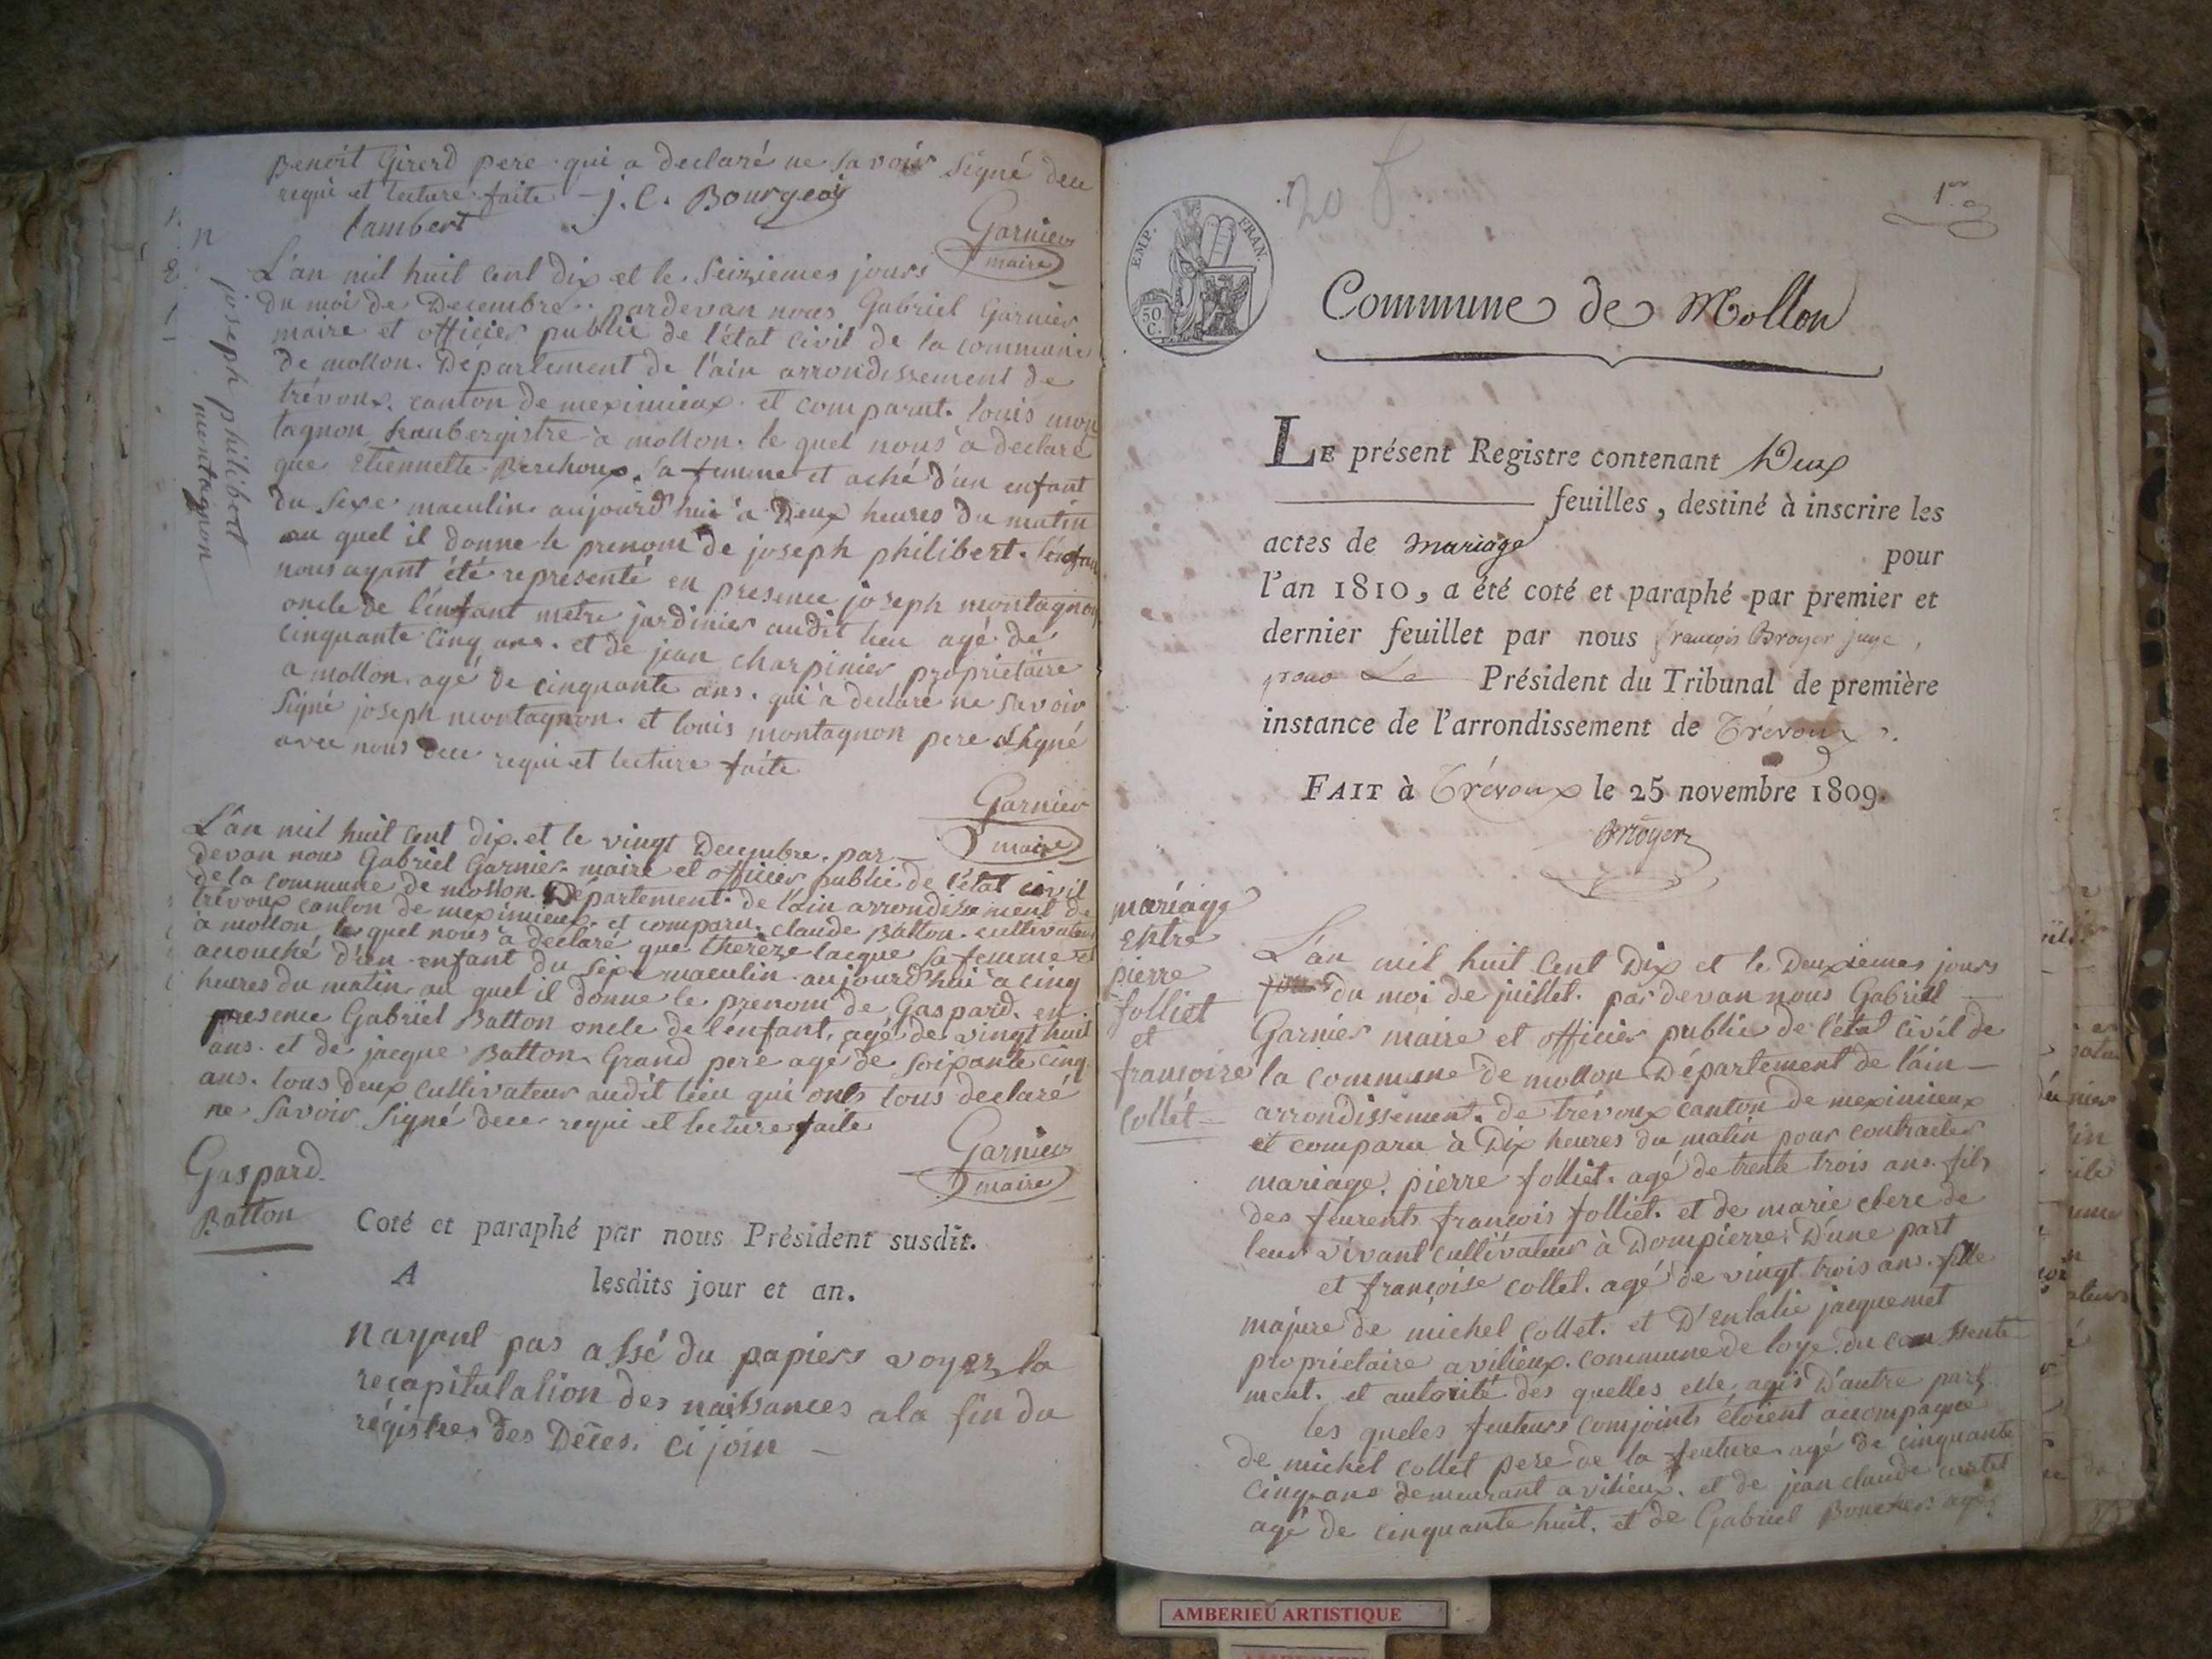 Benoit Girerd pere qui a declaré ne savoir signé deu
requi et lecture faite - j. C. Bourgeois
lambert
Garnier
maire
joseph philibert
montagnon
L'an mil huit cent dix et le seiziemes jours
du moi de Decembre. pardevan nous Gabriel Garnier
maire et officier public de l'état civil de la commune
de mollon. Département de l'ain arrondissement de
trévoux. canton de meximieux. et comparut. louis mon
tagnon aubergistre à mollon. le quel nous a declaré
que Etiennette Berchoux. sa femme et aché d'un enfant
du sexe maculin aujourd'hui à Deux heures du matin
au quel il donne le prenom de joseph philibert. l'enfan
nous ayant été representé en presence joseph montagnon
oncle de l'enfant metre jardinier audit lieu agé de
cinquante cinq ans. et de jean charpinier proprietaire
a mollon. agé de cinquante ans. qui a declaré ne savoir
signé joseph montagnon. et louis montagnon pere signé
avec nous deu requi et lecture faite
Garnier
maire
L'an mil huit cent dix. et le vingt Decembre. par
devan nous Gabriel Garnier maire et officier public de l'état civil
de la commune de mollon. Département de l'ain arrondissement de
trévoux canton de meximieux. et comparu. claude Batton. cultivateur
à mollon le quel nous à declaré que therèze lacque sa femme et
acouché d'un enfant du sexe maculin aujourd'hui à cinq
heures du matin au quel il donne le prenom de Gaspard. en
presence Gabriel Batton oncle de l'enfant, agé de vingt huit
ans. et de jacque Batton Grand pere agé de soixante cinq
ans. tous deux cultivateur audit lieu qui onts tous declaré
ne savoir signé deu requi et lecture faite
Garnier
maire
Gaspard
Batton
Coté et paraphé par nous Président susdit.
A lesdits jour et an.
nayant pas assé du papiers voyez la
recapitulation des naissances a la fin du
régistres des Déces. ci join -
20 f
1er
EMP. FRAN.
50. C.
Commune de Mollon
LE présent Registre contenant Deux
feuilles, destiné à inscrire les
actes de mariage pour
l'an 1810, a été coté et paraphé par premier et
dernier feuillet par nous françois Broyer juge,
pour Le Président du Tribunal de première
instance de l'arrondissement de Trévoux.
FAIT à Trévoux le 25 novembre 1809.
Broyer
mariage
Entre
pierre
folliet
et
françoize
collet
L'an mil huit cent Dix et le Deuxiemes jours
du moi de juillet. pardevan nous Gabriel
Garnier maire et officier public de l'état civil de
la commune de mollon Département de l'ain
arrondissement. de trévoux canton de meximieux
et comparu à Dix heures du matin pour contracter
mariage. pierre folliet. agé de trente trois ans. fils
des feurents françois folliet. et de marie clerc de
leur vivant cultivateur à Dompierre. D'une part
et françoise collet. agé de vingt trois ans. fille
majure de michel collet. et D'enlalie jacquemet
proprietaire a vilieux. commune de loye. du conssente
ment. et autorité des quelles elle agis D'autre part
les queles feuteurs comjoints étoient acompagné
de michel collet pere de la feuture agé de cinquante
cinq ans demeurant a vilieux. et de jean claude
agé de cinquante huit. et de Gabriel agé
AMBERIEU ARTISTIQUE